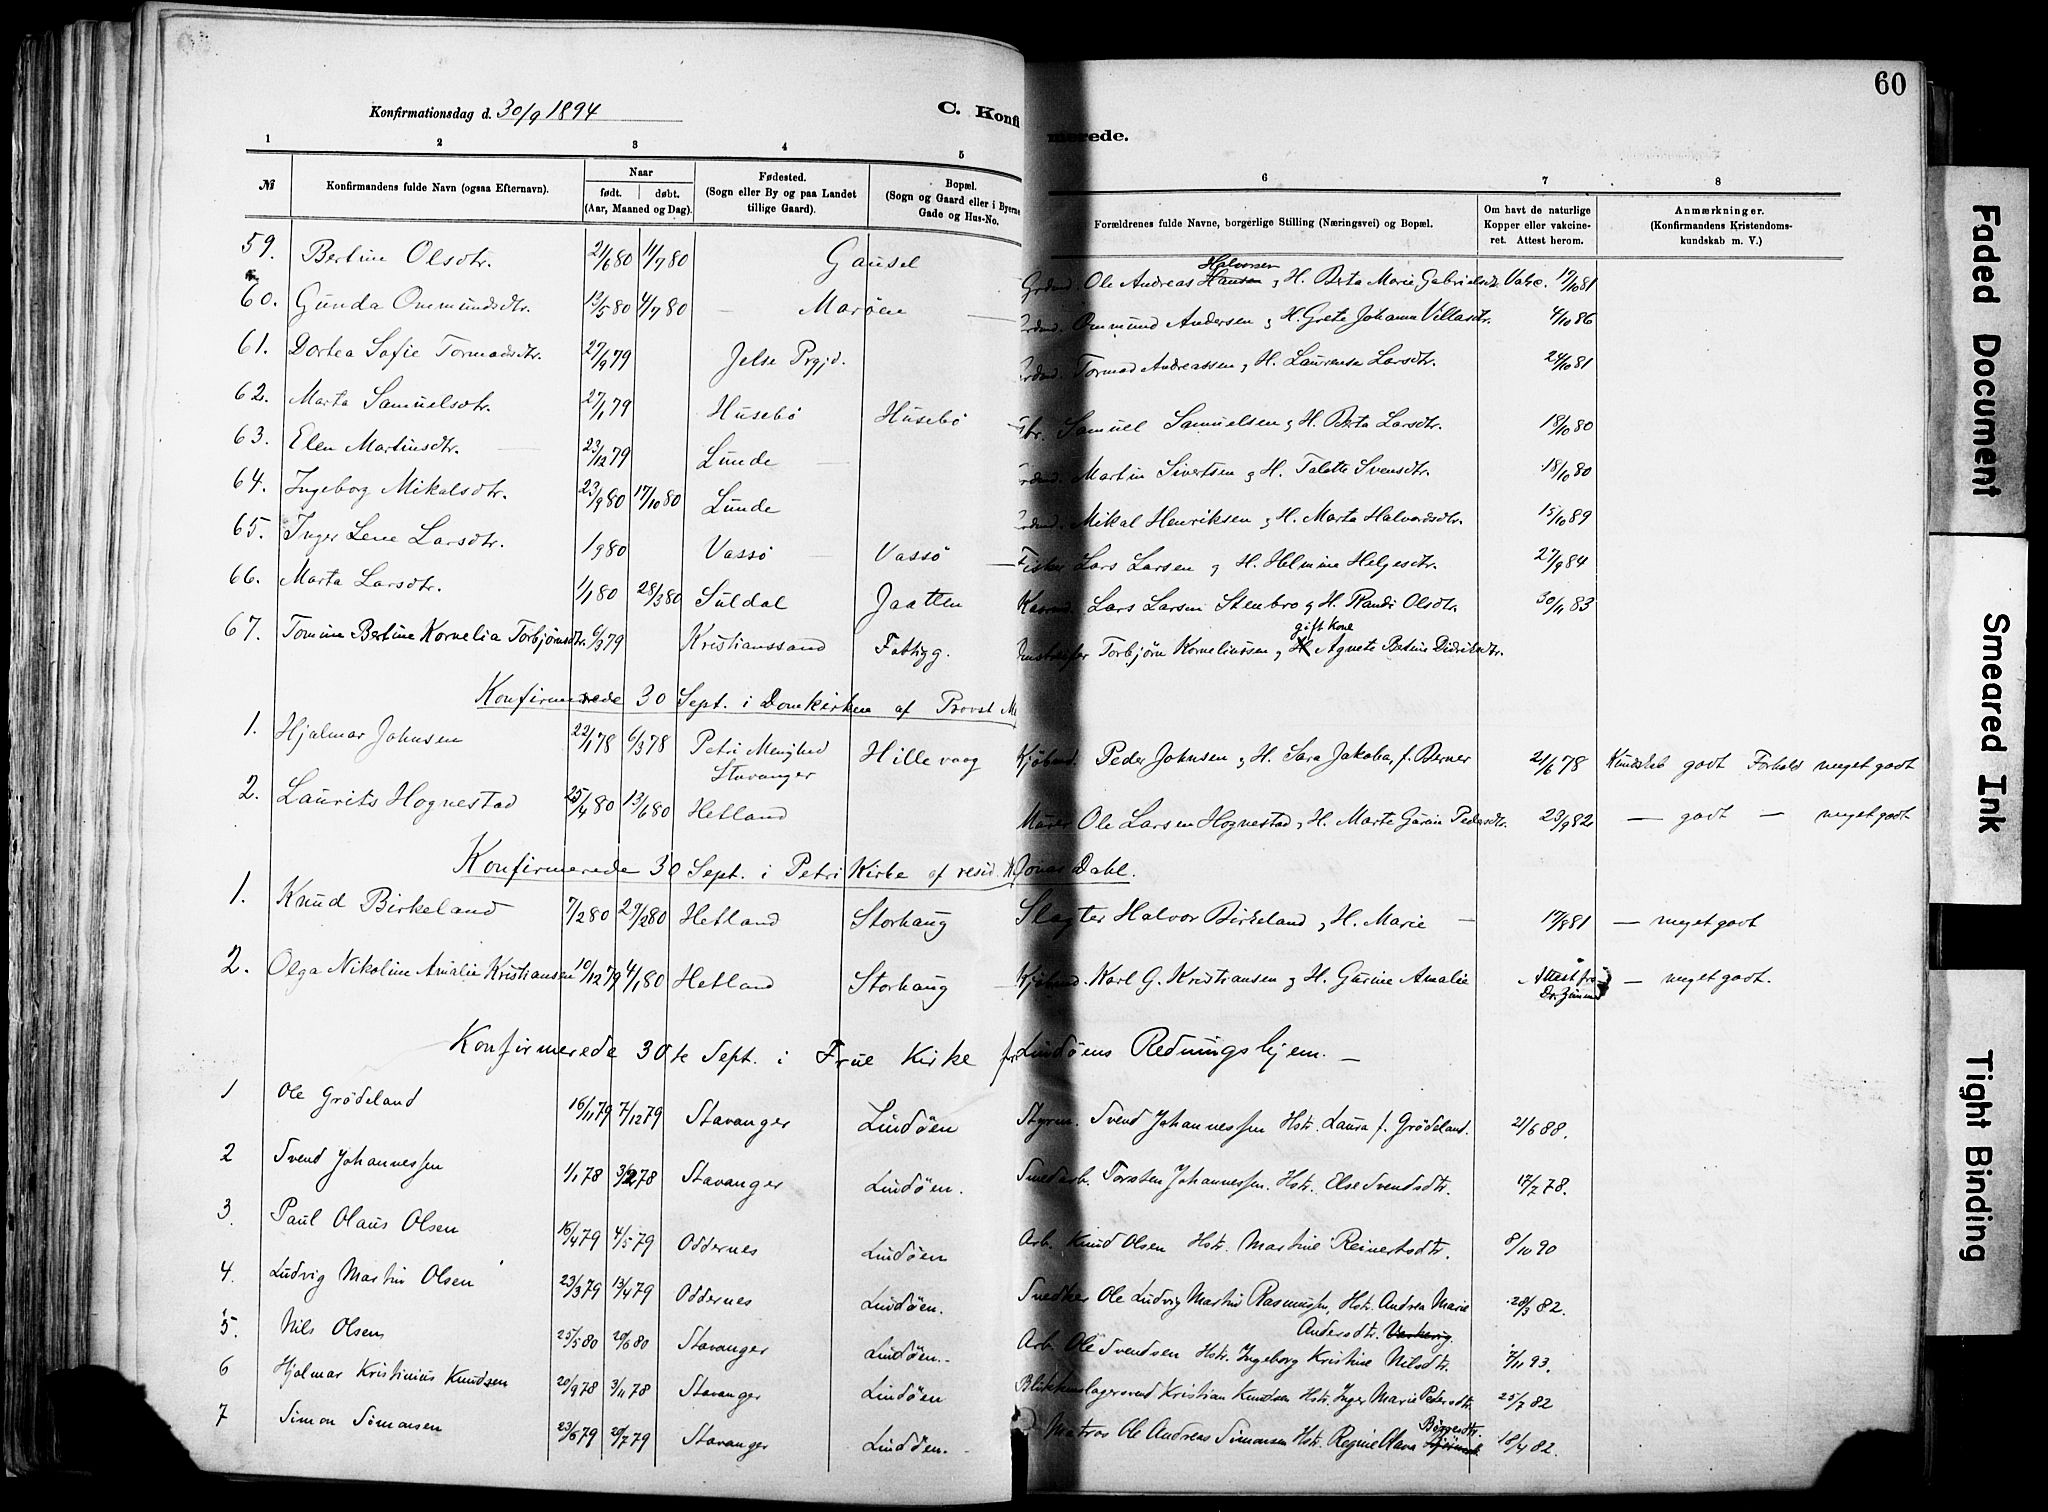 60
Konfirmationsdag d. 30/9 1894
C. Konfi
merede.
1 2 3 4 5 6 7 8
№ Konfirmandens fulde Navn (ogsaa Efternavn). Naar født. døbt. (Aar, Maaned og Dag). Fødested. (Sogn eller By og paa Landet tillige Gaard). Bopæl. (Sogn og Gaard eller i Byerne Gade og Hus-No. Forældrenes fulde Navne, borgerlige Stilling (Næringsvei) og Bopæl. Om havt de naturlige Kopper eller vakcineret. Attest herom. Anmærkninger. (Konfirmandens Kristendomskundskab m. V.)
59. Bertine Olsdtr. 21/6 80 11/7 80 Gausel Grdmd. Ole Andreas Halvorsen Hansen og H. Berta Marie Gabrielsdtr. Vakc. 17/10 81
60. Gunda Ommundsdtr. 13/5 80 4/7 80 — Marøen — Ommund Andersen og H. Grete Johanne Villasdtr. 4/10 86
61. Dortea Sofie Tormodsdtr. 27/9 79 Jelse Prgjd. Tormod Andreassen og H. Laurense Larsdtr. 24/10 81
62. Marta Samuelsdtr. 27/1 79 Husebø Husebø Samuel Samuelsen og H. Berta Larsdtr. 18/10 80
63. Elen Martinsdtr. — 23/12 79 Lunde — Martin Sivertsen og H. Talette Svensdtr. 18/10 80
64. Ingeborg Mikalsdtr. 23/9 80 17/10 80 Lunde Mikal Henriksen og H. Marta Halvordsdtr. 15/10 89
65. Inger Lene Larsdtr. 1/9 80 Vassø — Vassø — Fisker Lars Larsen og H. Helmine Helgesdtr. 27/9 84
66. Marta Larsdtr. 1/1 80 28/3 80 Suldal Jaatten Lars Larsen Stenbro og H. Randi Olsdtr. 30/11 83
67. Tomine Bertine Kornelia Torbjørnsdtr. 6/3 79 Kristianssand Fattigg. Torbjørn Korneliussen og gift Kone H Agnete Bertine Didriksdtr.
Konfirmerede 30 Sept. i Domkirken af Provst M
1. Hjalmar Johnsen 22/1 78 6/3 78 Petri Menighed Stavanger Hillevaag Kjøbmd. Peder Johnsen og H. Sara Jakoba, f. Berner 21/6 78 Kundskab godt Forhold meget godt
2. Laurits Hognestad 25/4 80 13/6 80 Hetland Murer Ole Larsen Hognestad, H. Marte Gurine Pedersdtr. 23/9 82 — godt — meget godt
Konfirmerede 30 Sept. i Petri Kirke af resid. K. Jonas Dahl.
1. Knud Birkeland 7/2 80 29/2 80 Hetland Storhaug Slagter Halvor Birkeland og H. Marie — 17/8 81 — meget godt
2. Olga Nikoline Amalie Kristiansen 10/12 79 4/1 80 Hetland Storhaug — Kjøbmd. Karl G. Kristiansen og H. Gurine Amalie Attest fra Dr. — meget godt.
Konfirmerede 30te Sept. i Frue Kirke fr. Lindøens Redningshjem. —
1 Ole Grödeland 16/11 79 7/12 79 Stavanger Lindöen Styrm. Svend Johannessen Hstr. Laura f. Grödeland. 21/6 88.
2 Svend Johannessen 1/1 78 3/2 78 Stavanger Lindöen. Smedarb. Torsten Johannessen. Hstr. Else Svendsdtr. 17/7 78.
3. Paul Olaus Olsen 16/4 79 4/5 79 Oddernes Lindöen Arb. Knud Olsen Hstr. Martine Reinertsdtr. 8/10 90
4. Ludvig Martin Olsen 23/3 79 13/4 79 Oddernes Lindöen. Snedker Ole Ludvig Martin Rasmussen, Hstr. Andrea Marie Andersdtr. 28/3 82.
5. Nils Olsen 25/5 80 20/6 80 Stavanger Lindöen. Arb. Ole Svendsen Hstr. Ingeborg Kristine Nilsdtr. 7/11 93.
6 Hjalmar Kristinius Knudsen 20/9 78 3/11 78 Stavanger Lindöen Blikkenslagersvend Kristian Knudsen Hstr. Inger Marie Pedersdtr. 25/7 82
7 Simon Simonsen 23/6 79 20/7 79 Stavanger Lindöen. Matros Ole Andreas Simonsen Hstr. Regine Olava 18/4 82.
Faded Document
Smeared Ink
Tight Binding